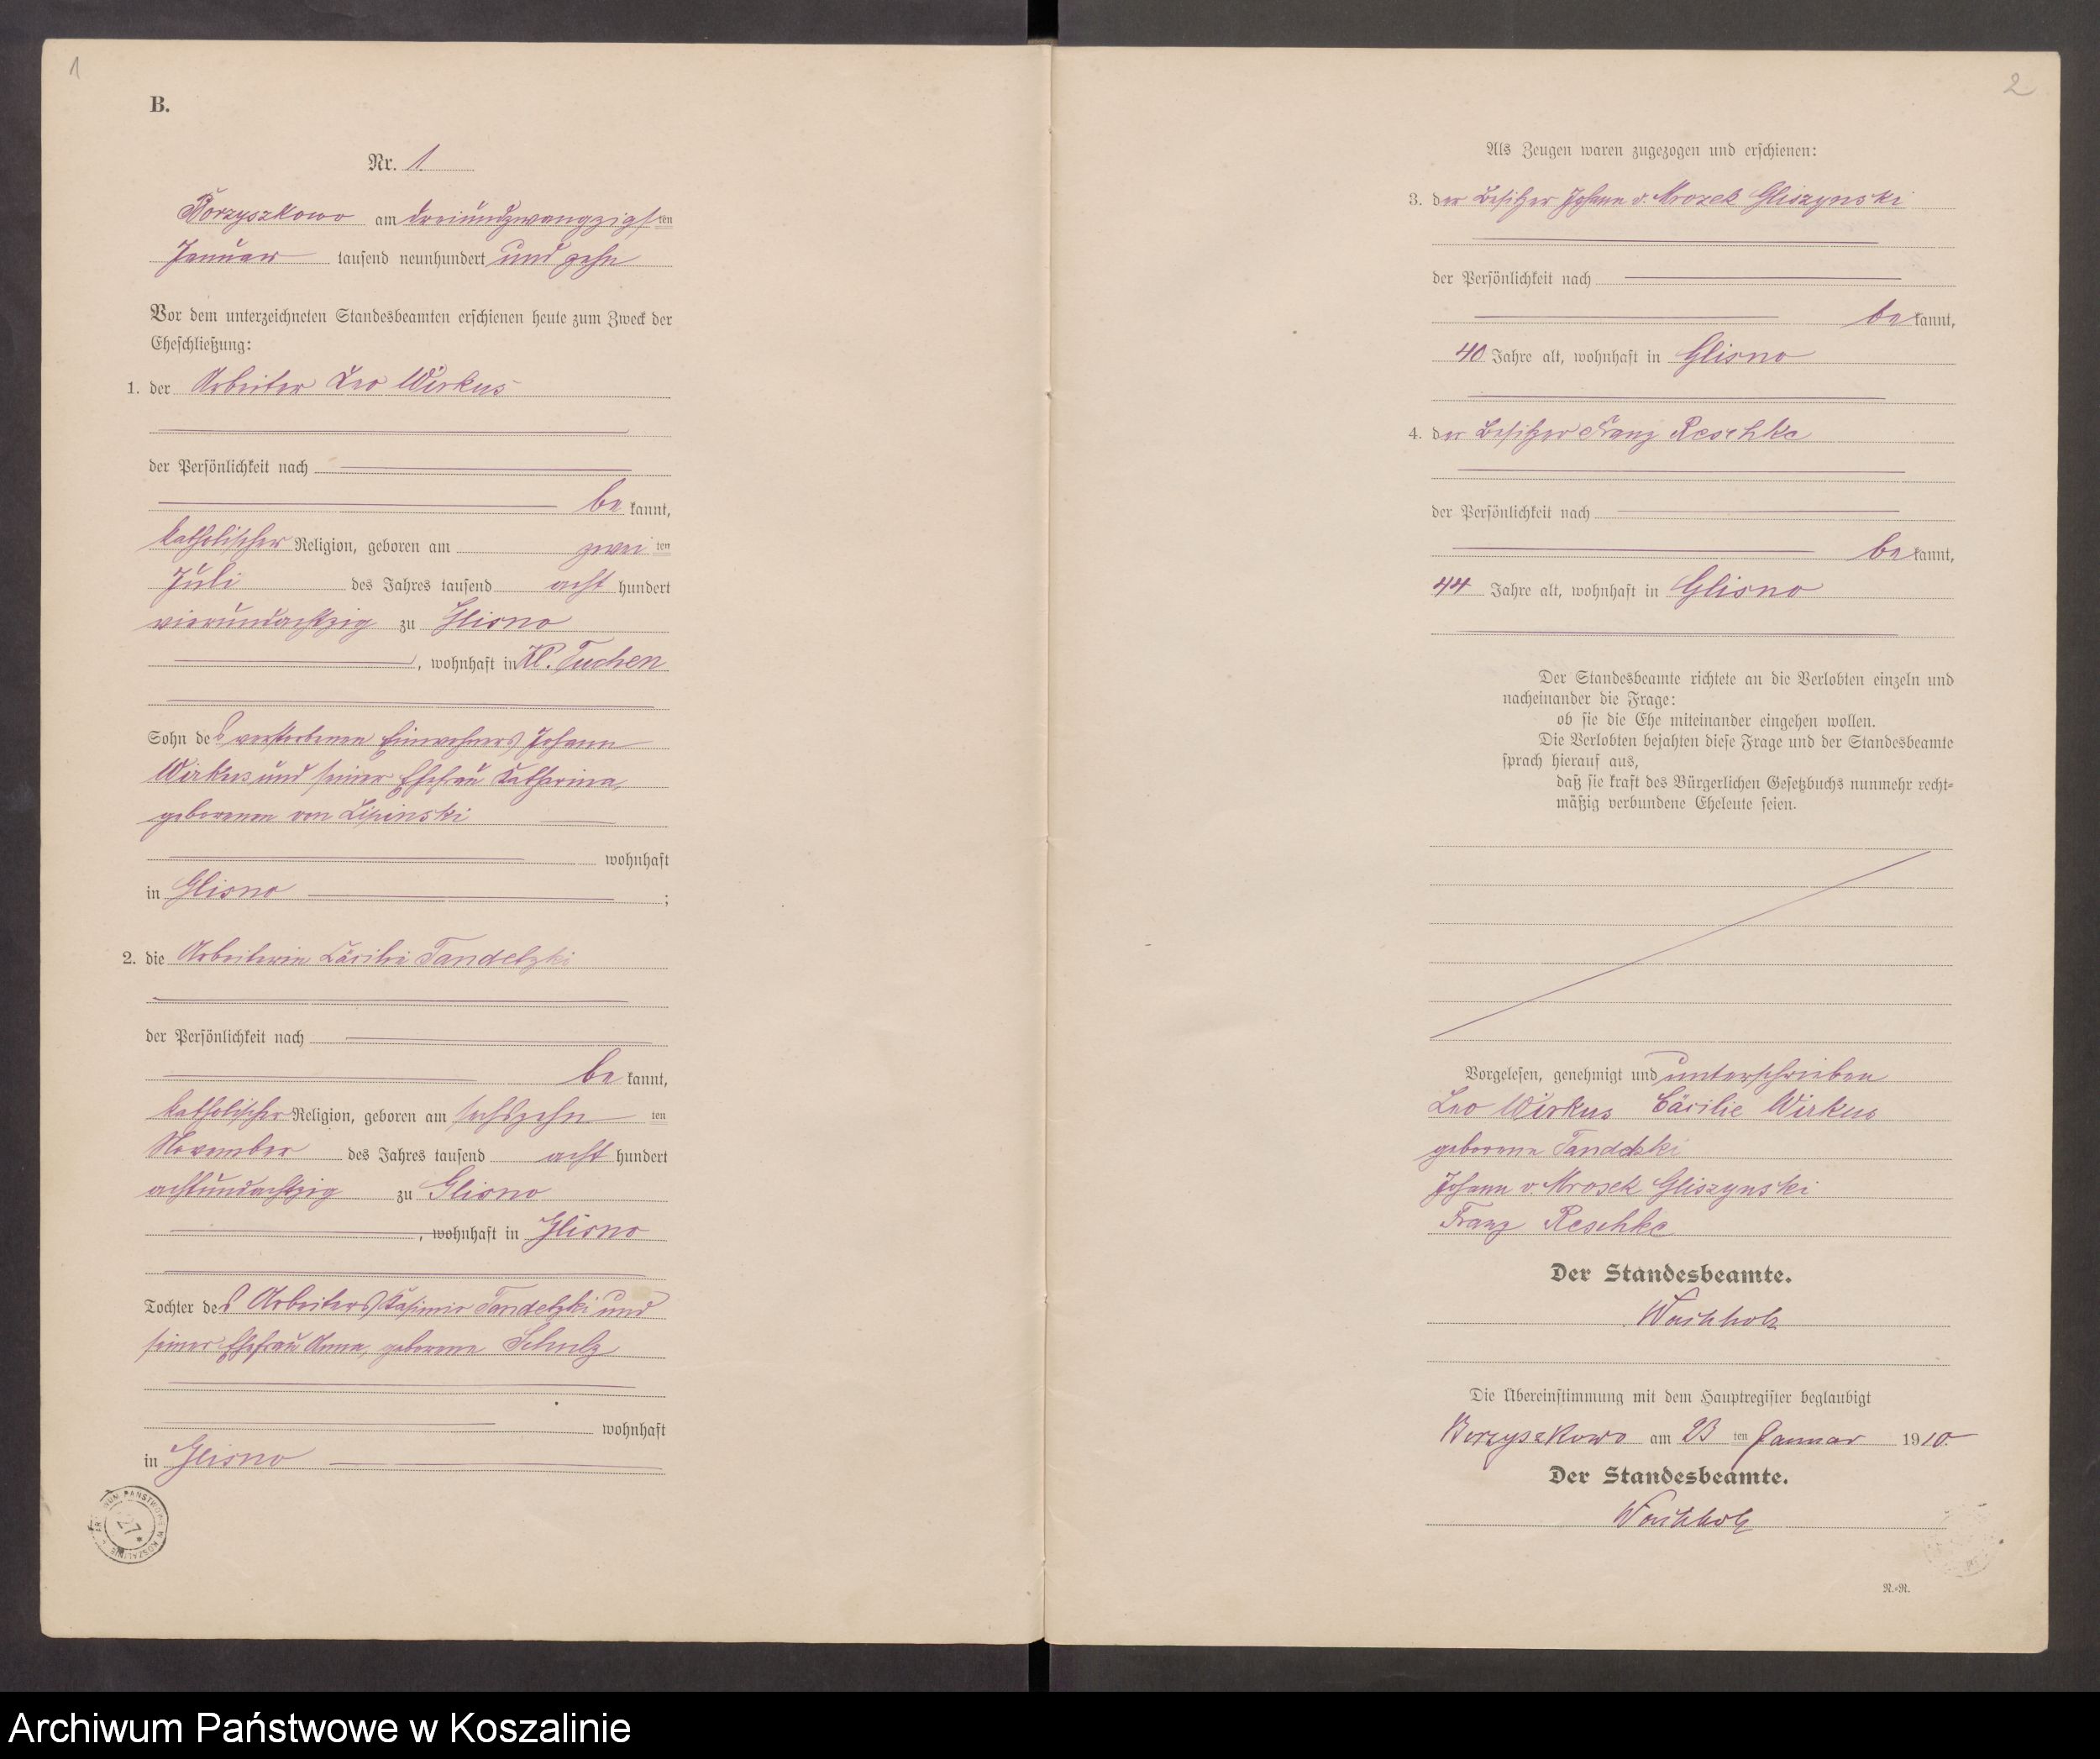 1
B.
Nr. 1.
Borzyszkowo am dreiundzwanzigsten
Januar tausend neunhundert und zehn
Vor dem unterzeichneten Standesbeamten erschienen heute zum Zweck der
Eheschließung:
1. der Arbeiter Leo Wirkus
der Persönlichkeit nach
be kannt,
katholischer Religion, geboren am zwei ten
Juli des Jahres tausend acht hundert
vierundachtzig zu Glisno
, wohnhaft in Kl. Tuchen
Sohn des verstorbenen Einwohners Johann
Wirkus und seiner Ehefrau Katharina,
geborenen von Lipinski
wohnhaft
in Glisno ;
2. die Arbeiterin Cäcilie Tandetzki
der Persönlichkeit nach
be kannt,
katholischer Religion, geboren am sechszehn ten
November des Jahres tausend acht hundert
achtundachtzig zu Glisno
, wohnhaft in Glisno
Tochter des Arbeiters Kasimir Tandetzki und
seiner Ehefrau Anna, geborene Schulz
wohnhaft
in Glisno
27
2
Als Zeugen waren zugezogen und erschienen:
3. der Besitzer Johann v. Mrozek Gliszynski
der Persönlichkeit nach
be kannt,
40 Jahre alt, wohnhaft in Glisno
4. der Besitzer Franz Reschke
der Persönlichkeit nach
be kannt,
44 Jahre alt, wohnhaft in Glisno
Der Standesbeamte richtete an die Verlobten einzeln und
nacheinander die Frage:
ob sie die Ehe miteinander eingehen wollen.
Die Verlobten bejahten diese Frage und der Standesbeamte
sprach hierauf aus,
daß sie kraft des Bürgerlichen Gesetzbuchs nunmehr recht-
mäßig verbundene Eheleute seien.
Vorgelesen, genehmigt und unterschrieben
Leo Wirkus Cäcilie Wirkus
geborene Tandetzki
Johann v. Mrosek Gliszynski
Franz Reschke
Der Standesbeamte.
Die Übereinstimmung mit dem Hauptregister beglaubigt
Borzyszkowo am 23 ten Januar 1910.
Der Standesbeamte.
N.-R.
Archiwum Państwowe w Koszalinie